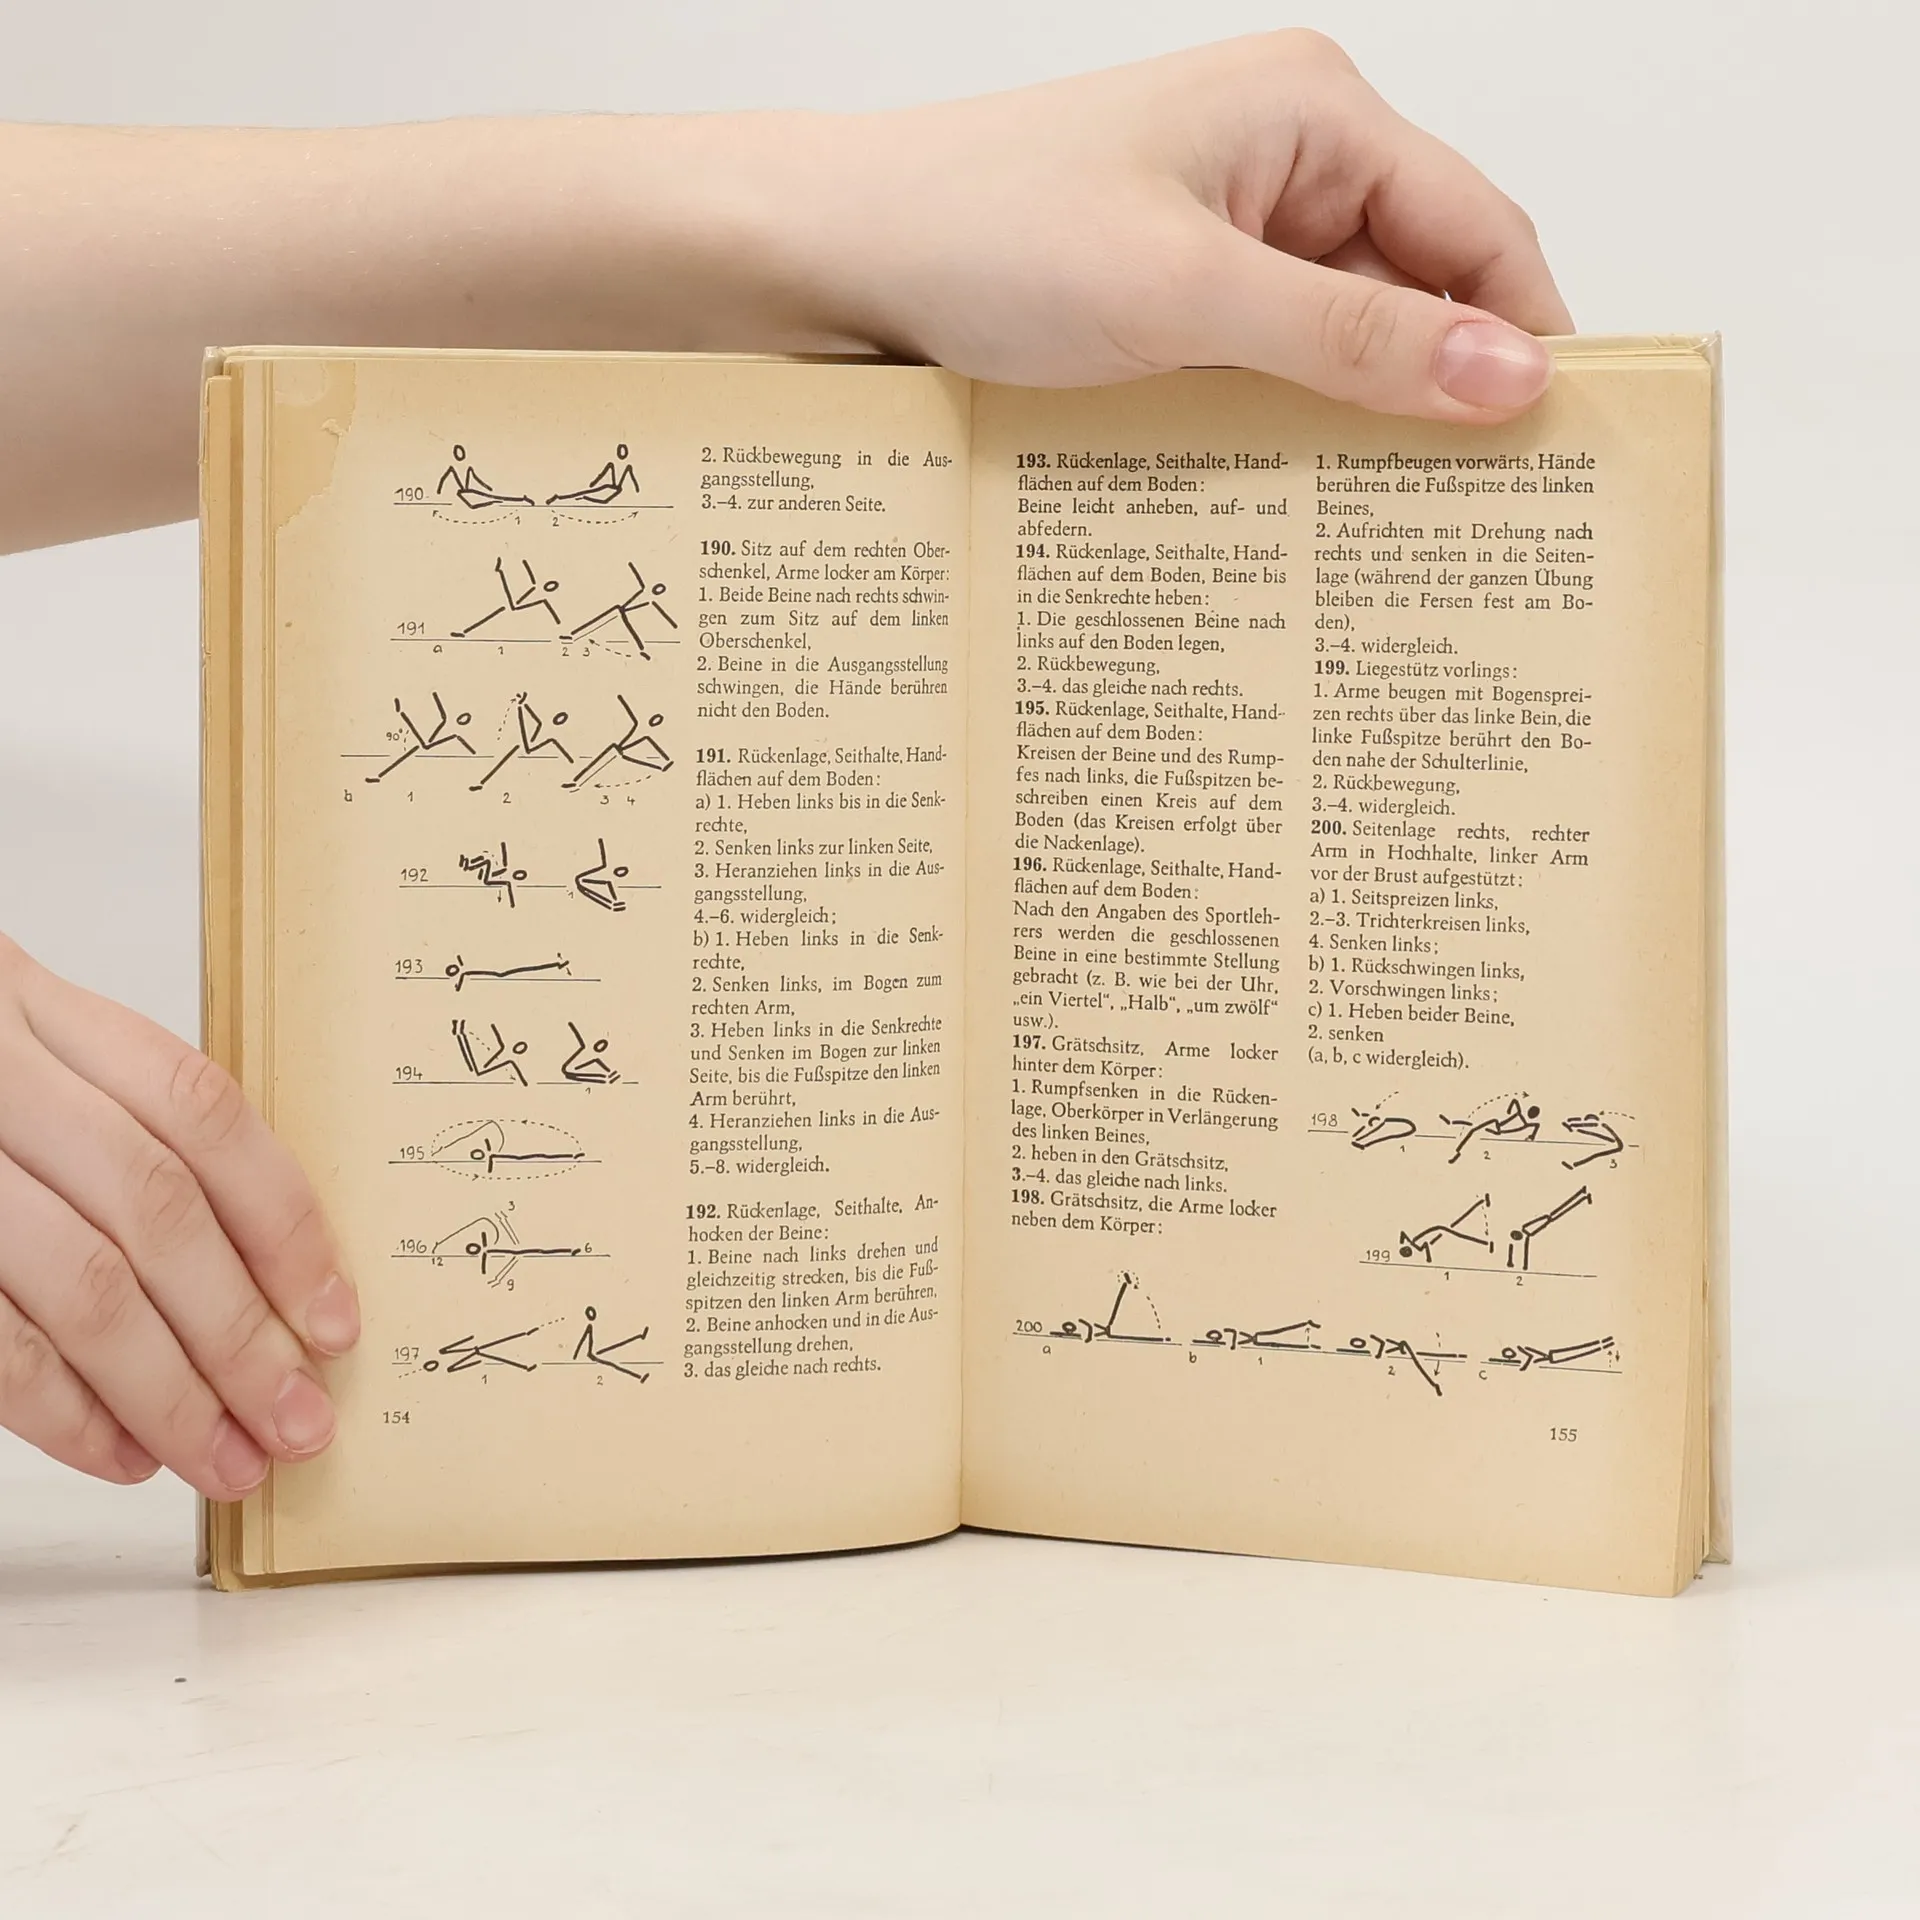 190
1
2
191
a
1
2
3
90°
b
1
2
3
4
192
1
193
194
1
195
196
3
12
6
9
197
1
2
154
2. Rückbewegung in die Aus-
gangsstellung,
3.–4. zur anderen Seite.
190. Sitz auf dem rechten Ober-
schenkel, Arme locker am Körper:
1. Beide Beine nach rechts schwin-
gen zum Sitz auf dem linken
Oberschenkel,
2. Beine in die Ausgangsstellung
schwingen, die Hände berühren
nicht den Boden.
191. Rückenlage, Seithalte, Hand-
flächen auf dem Boden:
a) 1. Heben links bis in die Senk-
rechte,
2. Senken links zur linken Seite,
3. Heranziehen links in die Aus-
gangsstellung,
4.–6. widergleich;
b) 1. Heben links in die Senk-
rechte,
2. Senken links, im Bogen zum
rechten Arm,
3. Heben links in die Senkrechte
und Senken im Bogen zur linken
Seite, bis die Fußspitze den linken
Arm berührt,
4. Heranziehen links in die Aus-
gangsstellung,
5.–8. widergleich.
192. Rückenlage, Seithalte, An-
hocken der Beine:
1. Beine nach links drehen und
gleichzeitig strecken, bis die Fuß-
spitzen den linken Arm berühren,
2. Beine anhocken und in die Aus-
gangsstellung drehen,
3. das gleiche nach rechts.
193. Rückenlage, Seithalte, Hand-
flächen auf dem Boden:
Beine leicht anheben, auf- und
abfedern.
194. Rückenlage, Seithalte, Hand-
flächen auf dem Boden, Beine bis
in die Senkrechte heben:
1. Die geschlossenen Beine nach
links auf den Boden legen,
2. Rückbewegung,
3.–4. das gleiche nach rechts.
195. Rückenlage, Seithalte, Hand-
flächen auf dem Boden:
Kreisen der Beine und des Rump-
fes nach links, die Fußspitzen be-
schreiben einen Kreis auf dem
Boden (das Kreisen erfolgt über
die Nackenlage).
196. Rückenlage, Seithalte, Hand-
flächen auf dem Boden:
Nach den Angaben des Sportleh-
rers werden die geschlossenen
Beine in eine bestimmte Stellung
gebracht (z. B. wie bei der Uhr,
„ein Viertel“, „Halb“, „um zwölf“
usw.).
197. Grätschsitz, Arme locker
hinter dem Körper:
1. Rumpfsenken in die Rücken-
lage, Oberkörper in Verlängerung
des linken Beines,
2. heben in den Grätschsitz,
3.–4. das gleiche nach links.
198. Grätschsitz, die Arme locker
neben dem Körper:
1. Rumpfbeugen vorwärts, Hände
berühren die Fußspitze des linken
Beines,
2. Aufrichten mit Drehung nach
rechts und senken in die Seiten-
lage (während der ganzen Übung
bleiben die Fersen fest am Bo-
den),
3.–4. widergleich.
199. Liegestütz vorlings:
1. Arme beugen mit Bogensprei-
zen rechts über das linke Bein, die
linke Fußspitze berührt den Bo-
den nahe der Schulterlinie,
2. Rückbewegung,
3.–4. widergleich.
200. Seitenlage rechts, rechter
Arm in Hochhalte, linker Arm
vor der Brust aufgestützt:
a) 1. Seitspreizen links,
2.–3. Trichterkreisen links,
4. Senken links;
b) 1. Rückschwingen links,
2. Vorschwingen links;
c) 1. Heben beider Beine,
2. senken
(a, b, c widergleich).
198
1
2
3
199
1
2
200
a
b
1
2
c
155